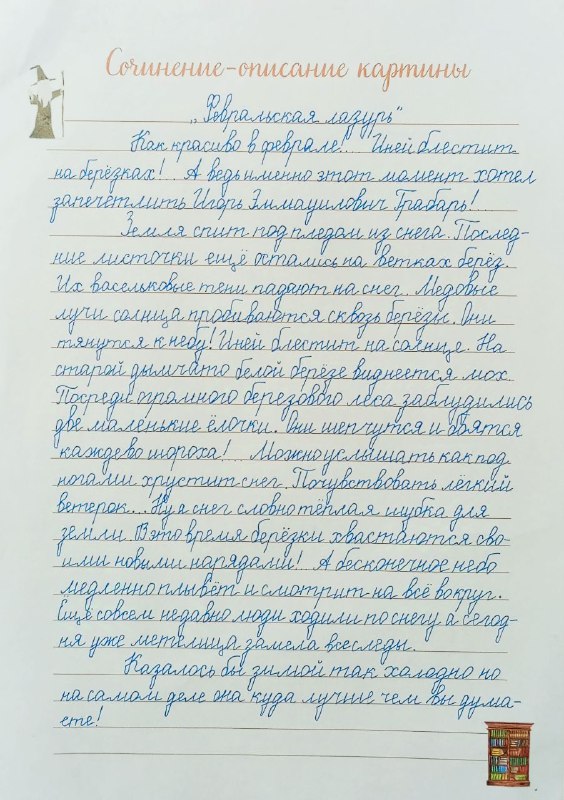 Сочинение-описание картины
„Февральская лазурь“
Как красиво в феврале! Иней блестит
на берёзках! А ведь именно этот момент хотел
запечетлить Игорь Эммауилович Грабарь!
Земля спит под пледом из снега. Послед-
ние листочки ещё остались на ветках берёз.
Их васельковые тени падают на снег. Медовые
лучи солнца пробиваются сквозь берёзы. Они
тянутся к небу! Иней блестит на солнце. На
старой дымчато белой берёзе виднеется мох.
Посреди огромного березового леса заблудились
две маленькие ёлочки. Они шепчутся и боятся
каждево шороха! Можно услышать как под
ногами хрустит снег. Почувствовать лёгкий
ветерок... Ну а снег словно тёплая шубка для
земли. В это время берёзки хвастаются сво-
ими новыми нарядами! А бесконечное небо
медленно плывёт и смотрит на всё вокруг.
Ещё совсем недавно люди ходили по снегу а сегод-
ня уже метелица замела все следы.
Казалось бы зимой так холодно но
на самом деле она куда лучше чем вы дума-
ете!